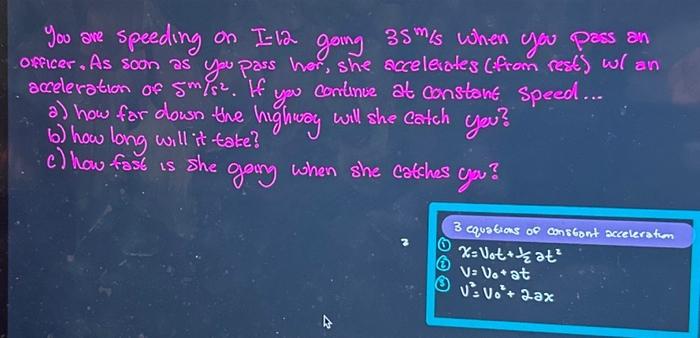 You are speeding on I-12 going 35 m/s when you pass an
officer. As soon as you pass her, she accelerates (from rest) w/ an
acceleration of 5 m/s². If you continue at constant speed...
a) how far down the highway will she catch you?
b) how long will it take?
c) how fast is she going when she catches you?
3 equations of constant acceleration
① x = V₀t + ½ at²
② V = V₀ + at
③ V² = V₀² + 2ax